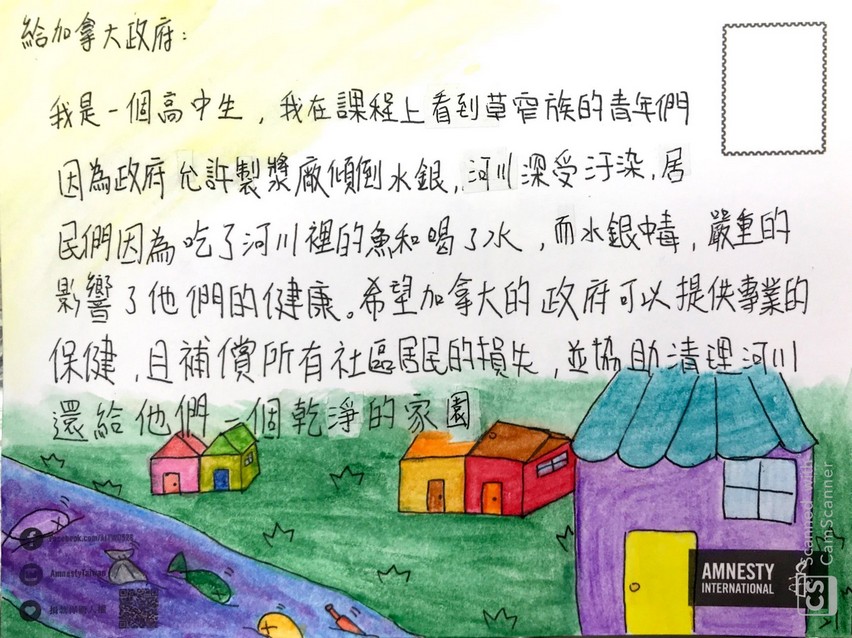 給加拿大政府：
我是一個高中生，我在課程上看到草窄族的青年們
因為政府允許製漿廠傾倒水銀，河川深受汙染，居
民們因為吃了河川裡的魚和喝了水，而水銀中毒，嚴重的
影響了他們的健康。希望加拿大的政府可以提供專業的
保健，且補償所有社區居民的損失，並協助清理河川
還給他們一個乾淨的家園
AmnestyTaiwan
AMNESTY
INTERNATIONAL
CS
Scanned with
CamScanner